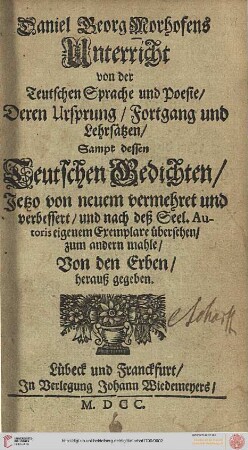 Daniel Georg Morhofens
Unterricht
von der
Teutschen Sprache und Poesie/
Deren Ursprung/ Fortgang und
Lehrsätzen/
Sampt dessen
Teutschen Gedichten/
Jetzo von neuem vermehret und
verbessert/ und nach deß Seel. Au-
toris eigenem Exemplare übersehen/
zum andern mahle/
Von den Erben/
herauß gegeben.
Lübeck und Franckfurt/
In Verlegung Johann Wiedemeyers/
M. DCC.